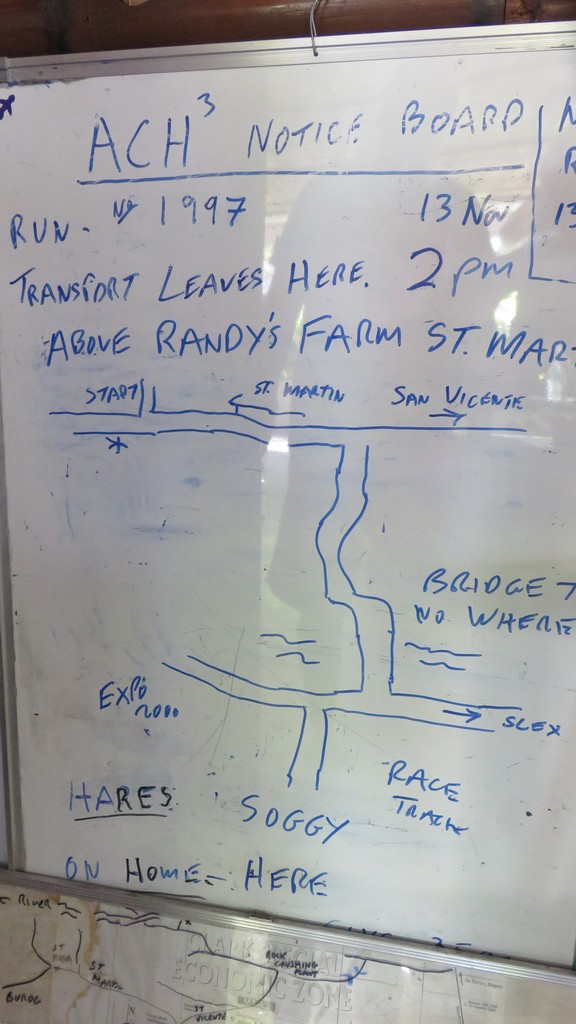 ACH³ NOTICE BOARD
RUN. Nº 1997 13 Nov
13
TRANSPORT LEAVES HERE. 2pm
ABOVE RANDY'S FARM ST. MART
START ST. MARTIN SAN VICENTE
BRIDGE
NO WHERE
EXPO
2000
SCEX
RACE
TRACK
HARES
SOGGY
ON HOME - HERE
RIVER
ST
ROSA
ST
MARTIN
BUROG
ROCK
CRUSHING
PLANT
CLARK SPECIAL
ECONOMIC ZONE
ST
VICENTE